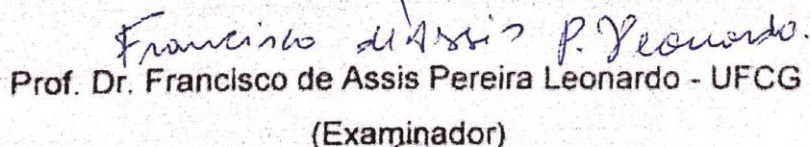 Francisco d'Assis P. Leonardo.
Prof. Dr. Francisco de Assis Pereira Leonardo - UFCG
(Examinador)